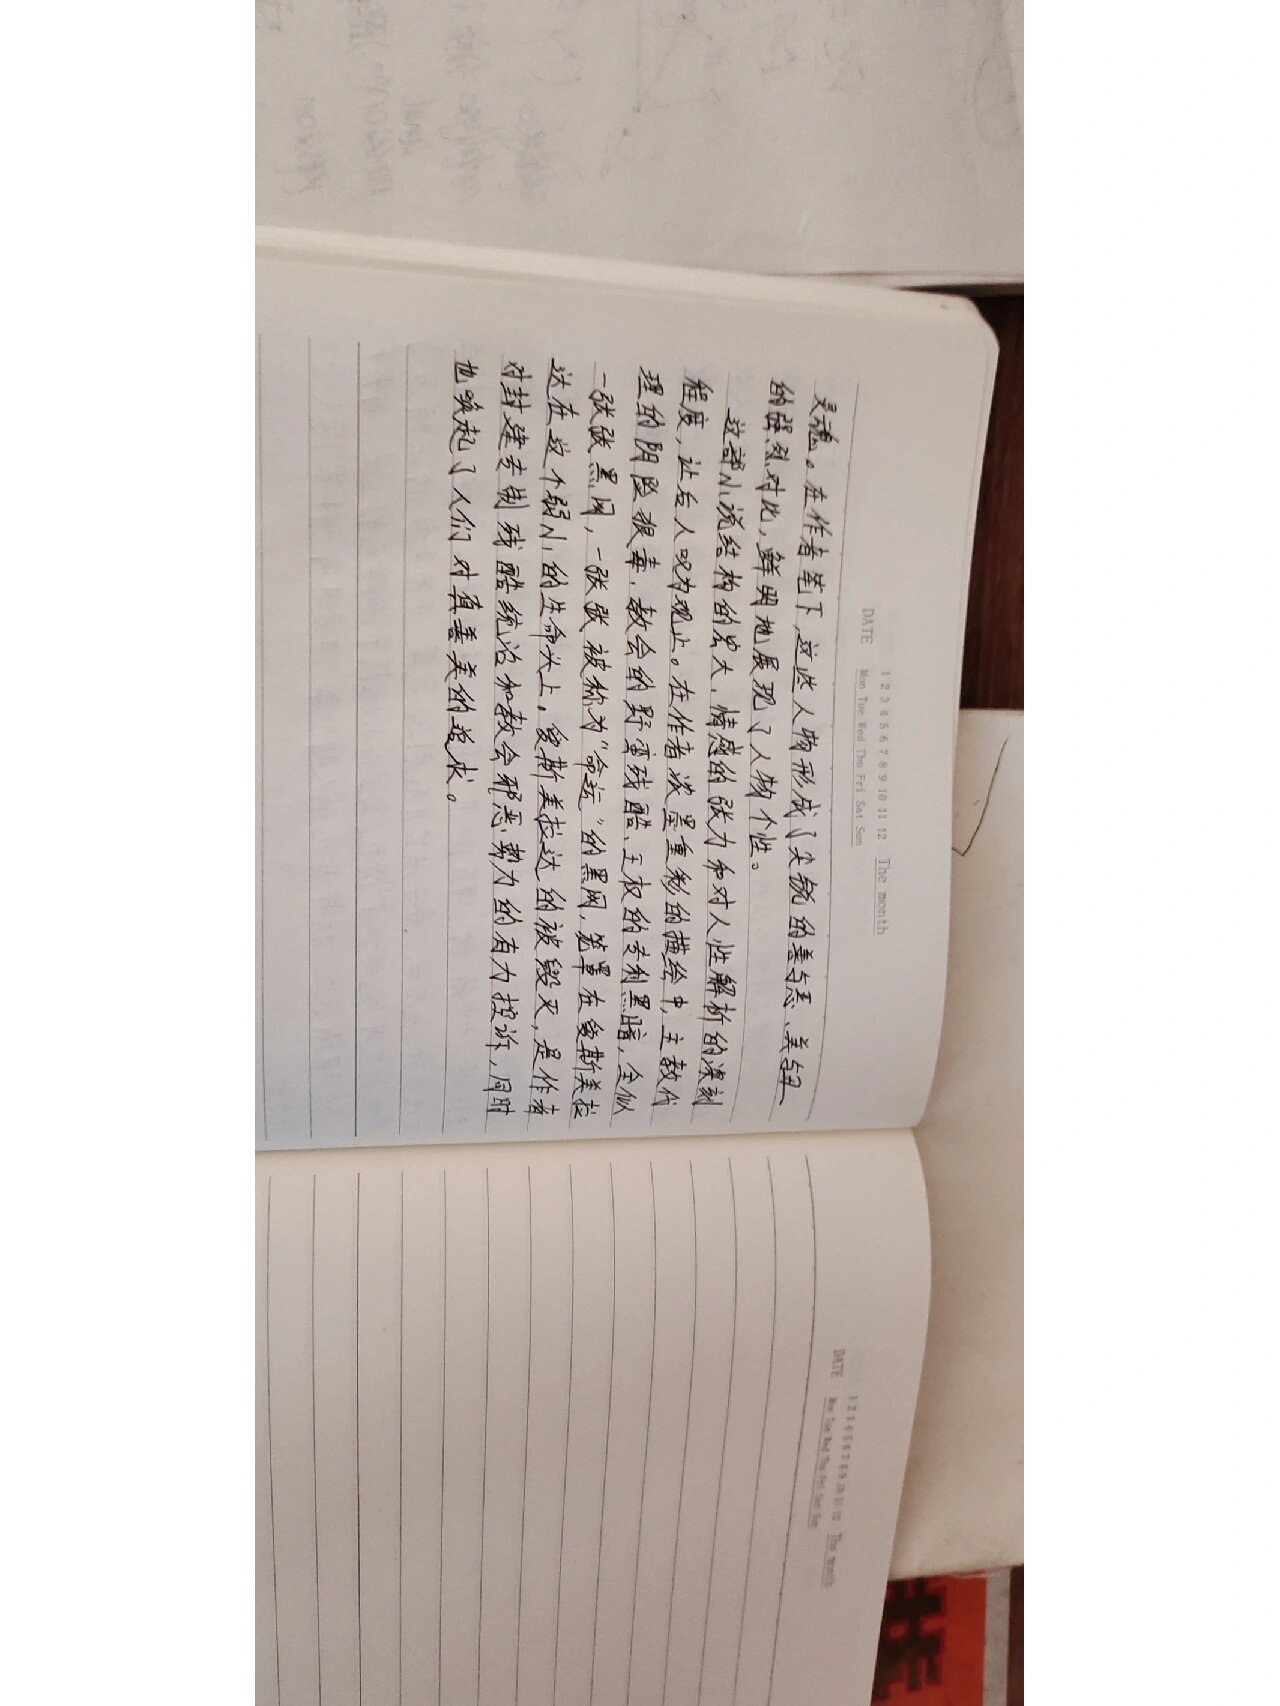 DATE
1 2 3 4 5 6 7 8 9 10 11 12 The month
Mon Tue Wed Thu Fri Sat Sun
灵魂。在作者笔下,这些人物形成了尖锐的善与恶、美与丑
的强烈对比,鲜明地展现了人物个性。
这部小说结构的宏大,情感的张力和对人性解析的深刻
程度,让后人叹为观止。在作者浓墨重彩的描绘中,主教代
理的阴险狠毒,教会的野蛮残酷、王权的专利黑暗,全似
一张张黑网,一张张被称为“命运”的黑网,笼罩在爱斯美拉
达在这个弱小的生命头上。爱斯美拉达的被毁灭,是作者
对封建专制残酷统治和教会邪恶势力的有力控诉,同时
也唤起了人们对真善美的追求。
DATE
1 2 3 4 5 6 7 8 9 10 11 12 The month
Mon Tue Wed Thu Fri Sat Sun